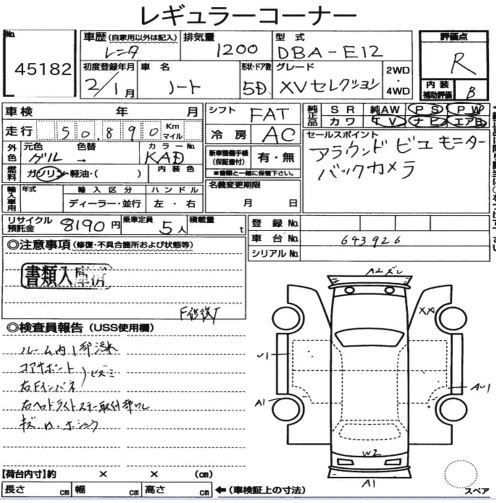 レギュラーコーナー
No. 45182
車歴 (自家用以外は記入) レンタ
排気量 1200
型式 DBA-E12
評価点 R
初度登録年月 2/1月
車名 ノート
形状・ドア数 5D
グレード XVセレクション
2WD・4WD
内装補助評価 B
車検 年 月
シフト FAT
純正品 SR 純AW PS PW
革 カワ TV ナビ エアB
走行 50,890 Km マイル
冷房 AC
セールスポイント
アラウンドビューモニター
バックカメラ
外色 元色 色替 カラーNo.
グレー KAD
燃料 ガソリン・軽油・( ) 内装色
新車整備手帳(保証書付) 有・無
※書類と一緒に保管下さい。
輸入車用 年式 輸入区分 ハンドル
ディーラー・並行 左・右
名義変更期限 月 日
リサイクル預託金 8190円
乗車定員 5人
積載量 t
登録No.
車台No. 643926
シリアルNo.
◎注意事項 (修復・不具合箇所および状態等)
書類入庫済
F修復
◎検査員報告 (USS使用欄)
ルーム内
コアサポート
右Fインパネ
右ヘッドライトステー取付部ワレ
A1
A1
W2
A1
XX
スペア
【荷台内寸】約 × × (cm)
長さ cm 幅 cm 高さ cm ←(車検証上の寸法)